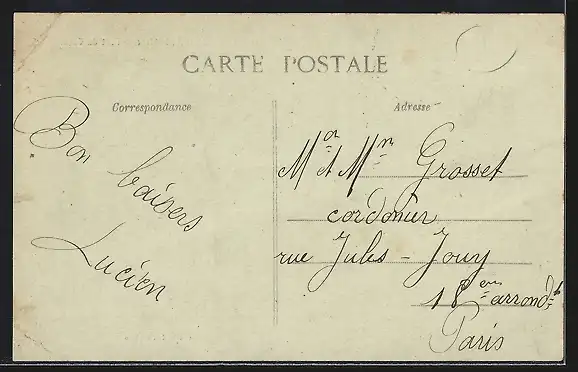 CARTE POSTALE
Correspondance
Bon baisers
Lucien
Adresse
Mr et Mm Grosset
cordonier
rue Jules-Jouy
18em arrondt
Paris